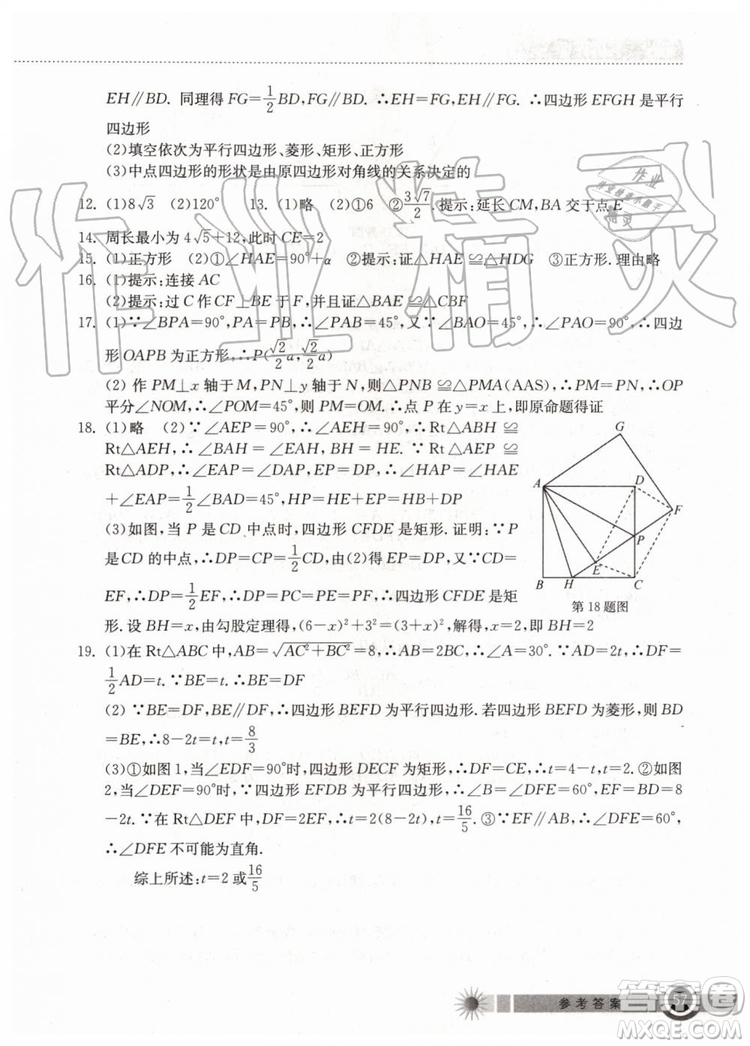 EH∥BD. 同理得 FG=1/2BD,FG∥BD. ∴EH=FG,EH∥FG. ∴四边形 EFGH 是平行
四边形
(2)填空依次为平行四边形、菱形、矩形、正方形
(3)中点四边形的形状是由原四边形对角线的关系决定的
12. (1)8√3 (2)120° 13. (1)略 (2)①6 ②3√7/2. 提示:延长 CM,BA 交于点 E
14. 周长最小为 4√5+12,此时 CE=2
15. (1)正方形 (2)①∠HAE=90°+α ②提示:证△HAE≌△HDG ③正方形. 理由略
16. (1)提示:连接 AC
(2)提示:过 C 作 CF⊥BE 于 F,并证△BAE≌△CBF
17. (1)∵∠BPA=90°,PA=PB,∴∠PAB=45°,又∵∠BAO=45°,∴∠PAO=90°,∴四边
形 OAPB 为正方形,∴P(√2/2a,√2/2a)
(2) 作 PM⊥x 轴于 M,PN⊥y 轴于 N,则△PBN≌△PMA(AAS),∴PM=PN,∴OP
平分∠NOM,∴∠POM=45°,∴PM=OM. ∴点 P 在 y=x 上,即原命题得证
18. (1)略 (2)∵∠AEP=90°,∴∠AEH=90°,∴Rt△ABH≌
Rt△AEH,∴∠BAH=∠EAH,BH=HE. ∵Rt△AEP≌
Rt△ADP,∴∠EAP=∠DAP,EP=DP,∴∠HAP=∠HAE
+∠EAP=1/2∠BAD=45°,HP=HE+EP=BH+DP
(3)如图,当 P 是 CD 中点时,四边形 CFDE 是矩形. 证明:∵P
是CD 的中点,∴DP=CP=1/2CD,由(2)得 EP=DP,又∵CD=
EF,∴DP=1/2EF,∴DP=PC=PE=PF,∴四边形 CFDE 是矩
形. 设 BH=x,由勾股定理得,(6-x)²+3²=(3+x)²,解得,x=2,即 BH=2
G
A
D
F
P
E
B
H
C
第 18 题图
19. (1)在 Rt△ABC 中,AB=√AC²+BC²=8,∴∠A=30°,∵AD=2t,∴DF=
1/2AD=t. ∵BE=t,∴BE=DF
(2) ∵BE=DF,BE∥DF,∴四边形 BEFD 为平行四边形. 若四边形 BEFD 为菱形,则 BD
=BE,∴8-2t=t,∴t=8/3
(3)①如图 1,当∠EDF=90°时,四边形 DECF 为矩形,∴DF=CE,∴t=4-t,t=2. ②如
图 2,当∠DEF=90°时,∵四边形 EFDB 为平行四边形,∴∠EDF=∠DEB=60°,BD=8
-2t. ∵在 Rt△DEF 中,DF=2EF,∴t=2(8-2t),∴t=16/5. ③∵EF∥AB,∴∠DFE=60°,
∴∠DFE 不可能为直角.
综上所述:t=2 或16/5
参考答案
57
作业精灵
答案圈
MXQE.COM